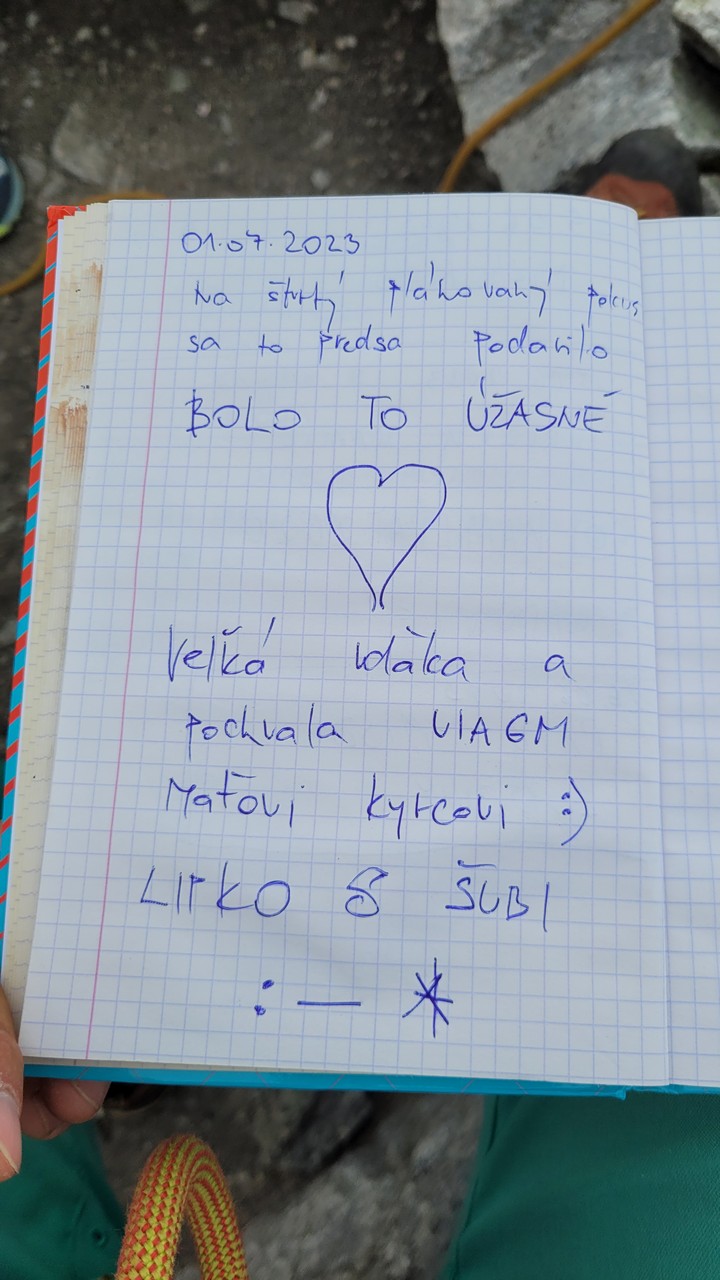 01.07.2023
Na štvrtý plánovaný pokus
sa to predsa podarilo
BOLO TO ÚŽASNÉ
Veľká vďaka a
pochvala UIAGM
Maťovi Kyrcovi :)
LIPKO & ŠUBI
:— *